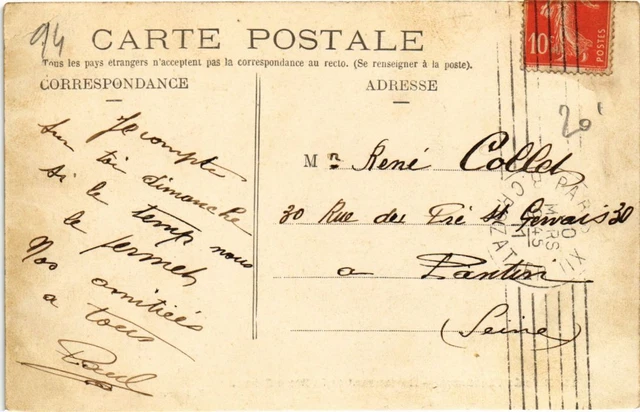 94
CARTE POSTALE
Tous les pays étrangers n'acceptent pas la correspondance au recto. (Se renseigner à la poste).
CORRESPONDANCE
ADRESSE
Je compte
sur toi dimanche
si le temps nous
le permet
Nos amitiées
a tous
Paul
10
POSTES
20
Mr René Collet
30 Rue du Pré St Gervais 30
a Pantin
(Seine)
PARIS XII
CROZATIER
MARS